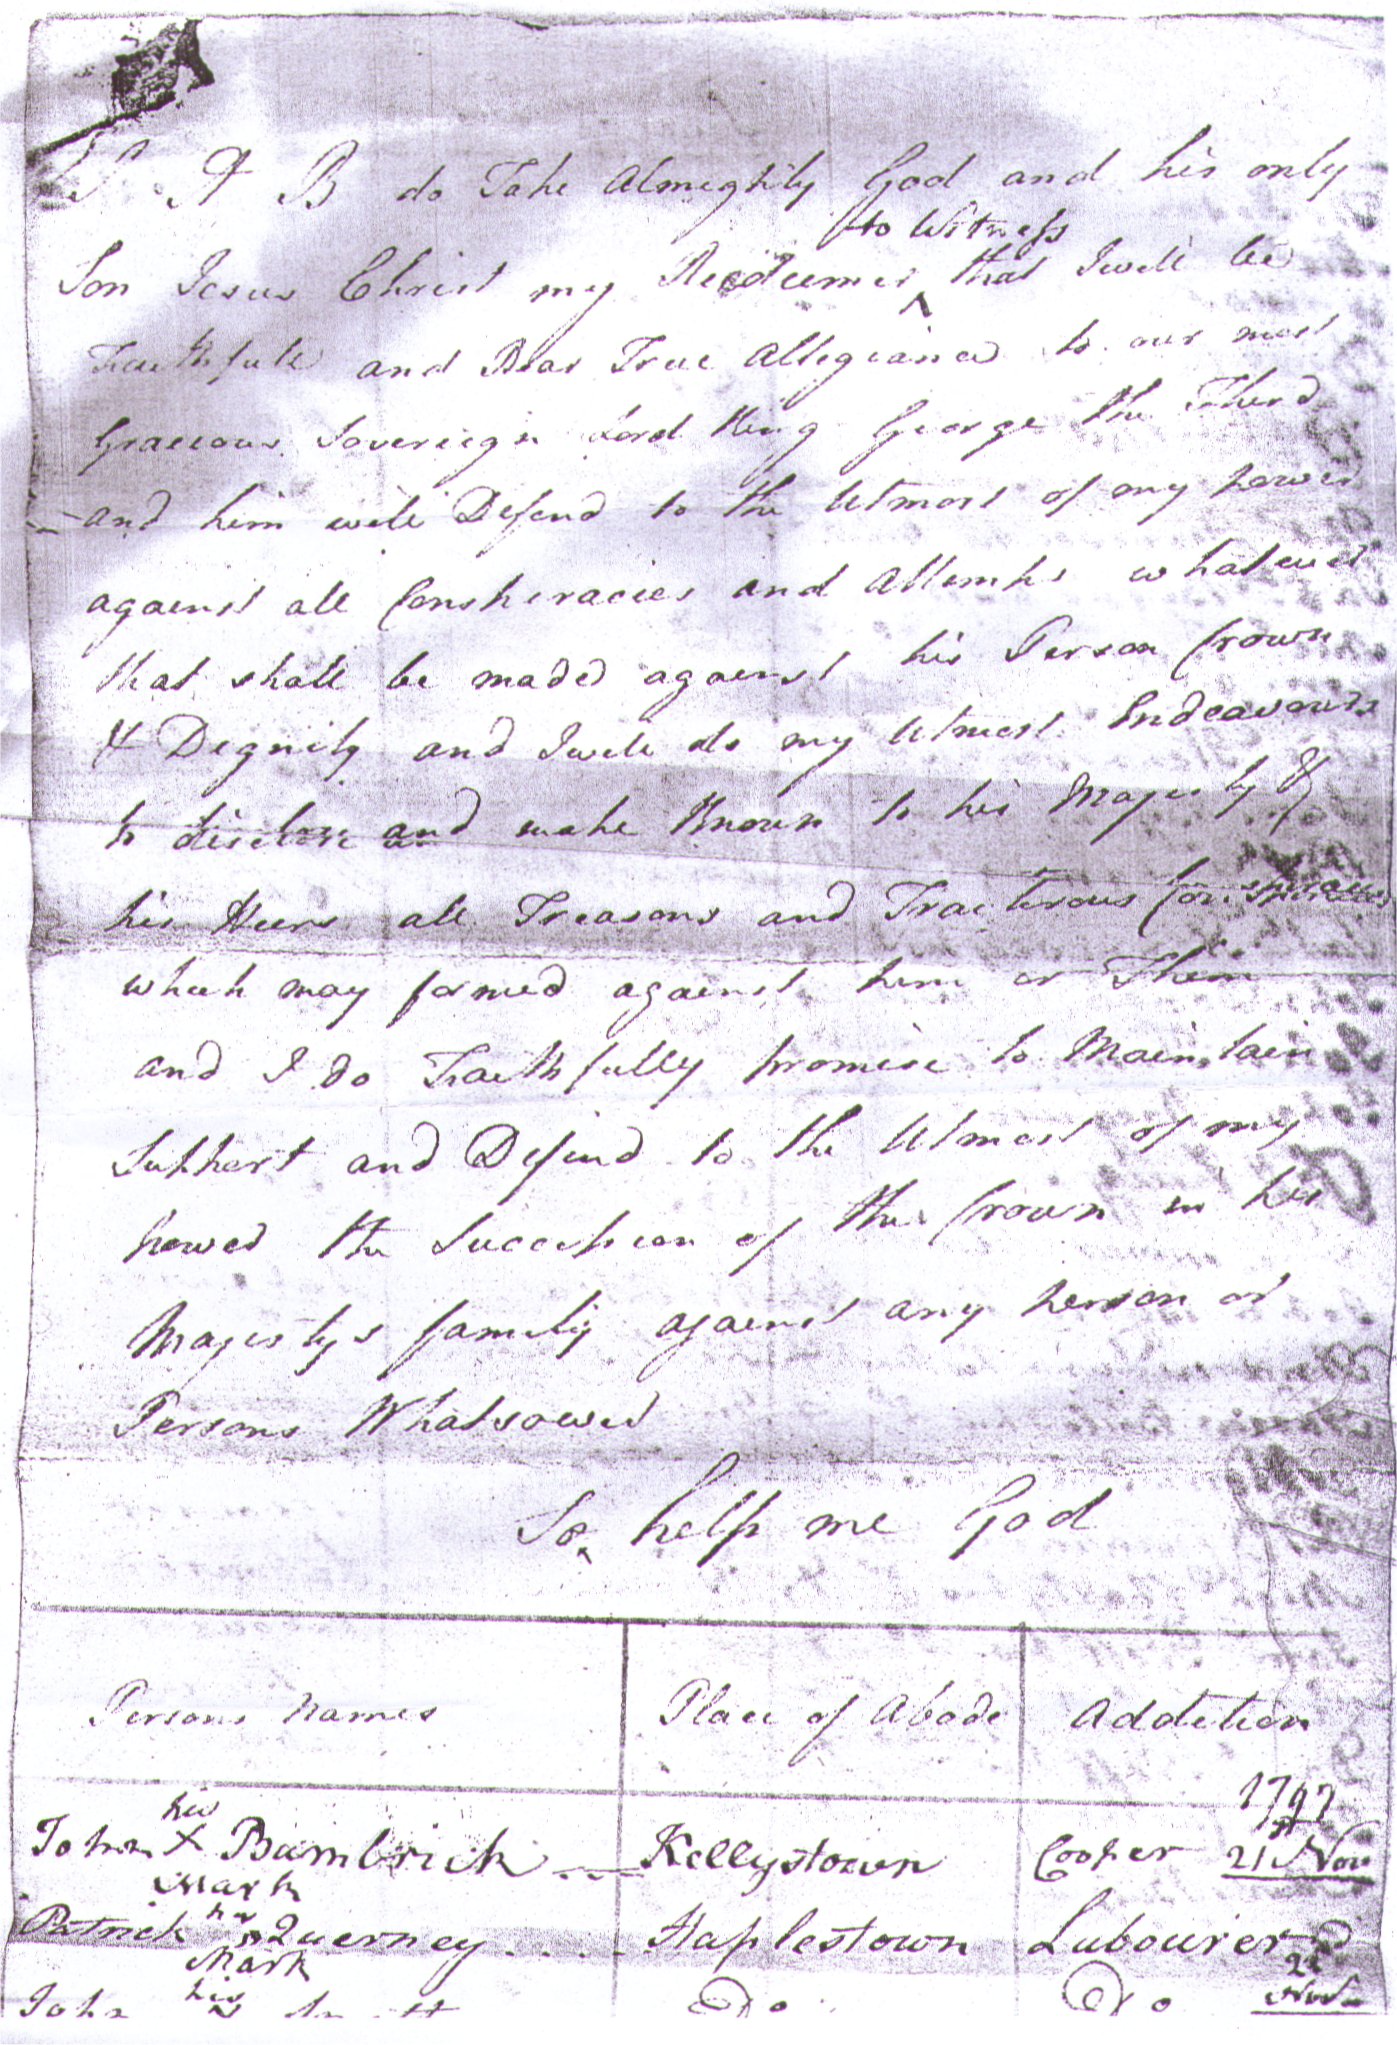 I A B do Take Almeghty God and his only
to Witness
Son Jesus Christ my Redeemer ^ that I will be
Faithfull and Bear True Allegiance to our most
Gracious Sovereign Lord King George the Therd
and him will Defend to the Utmost of my power
against all Conspiracies and Attempts whatever
that shall be maded against his Person Crown
& Dignity and I will do my Utmost Endeavours
to disclose and make Known to his Majesty &
his Heirs all Treasons and Traiterous Conspiracies
which may formed against him or Them
and I do Faithfully promise to Maintain
Support and Defend to the Utmost of my
power the Succession of the Crown in his
Majestys family against any person or
Persons Whatsover
So help me God
Persons Names Place of Abode Addition
1797
his
John X Bambrick Kellystown Cooper 21st Nov
Mark
his
Patrick Querney Staplestown Labourer Do
Mark
22
his
John Do Do Nov